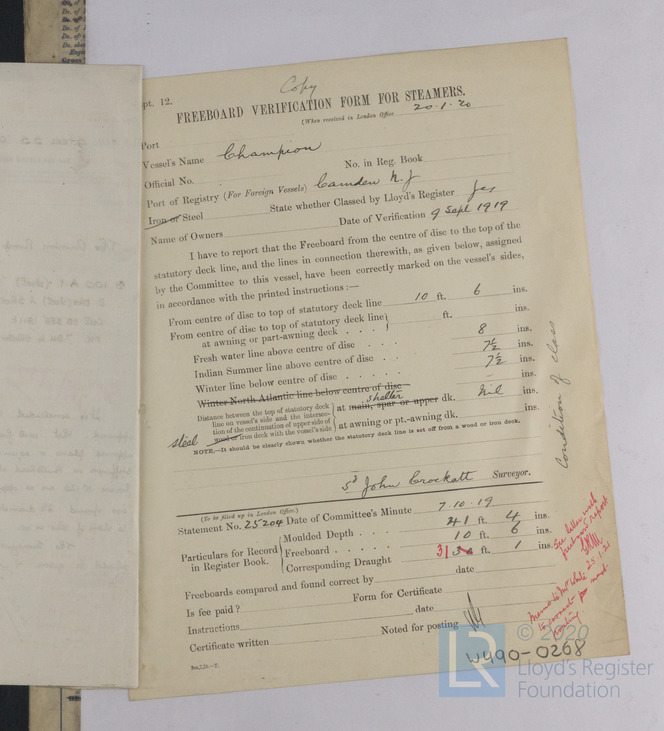 Copy
pt. 12.
FREEBOARD VERIFICATION FORM FOR STEAMERS.
(When received in London Office 20.1.20
Port
Vessel's Name Champion
Official No. No. in Reg. Book
Port of Registry (For Foreign Vessels) Camden N.J
Iron or Steel State whether Classed by Lloyd's Register Yes
Name of Owners Date of Verification 9 Sept 1919
I have to report that the Freeboard from the centre of disc to the top of the
statutory deck line, and the lines in connection therewith, as given below, assigned
by the Committee to this vessel, have been correctly marked on the vessel's sides,
in accordance with the printed instructions :—
From centre of disc to top of statutory deck line 10 ft. 6 ins.
From centre of disc to top of statutory deck line
at awning or part-awning deck . . . . ft. ins.
Fresh water line above centre of disc . . . 8 ins.
Indian Summer line above centre of disc . . 7½ ins.
Winter line below centre of disc . . . . . 7½ ins.
Winter North Atlantic line below centre of disc ins.
Distance between the top of statutory deck
line on vessel's side and the intersec-
tion of the continuation of upper side of
steel wood or iron deck with the vessel's side
at main, spar or upper shelter dk. Nil ins.
at awning or pt.-awning dk. ins.
NOTE.—It should be clearly shown whether the statutory deck line is set off from a wood or iron deck.
Condition of class
Sd John Crockatt Surveyor.
(To be filled up in London Office.)
Statement No. 25204 Date of Committee's Minute 7.10.19
Particulars for Record
in Register Book.
Moulded Depth . . . 41 ft. 4 ins.
Freeboard . . . . . 10 ft. 6 ins.
Corresponding Draught 31 ft. 1 ins.
Freeboards compared and found correct by date
Is fee paid? Form for Certificate
Instructions date
Certificate written Noted for posting
See letter with
freeboard report
Memo to Mr White 25.1.20
to correct for next
posting
W490-0268
© 2020
LR
Lloyd's Register
Foundation